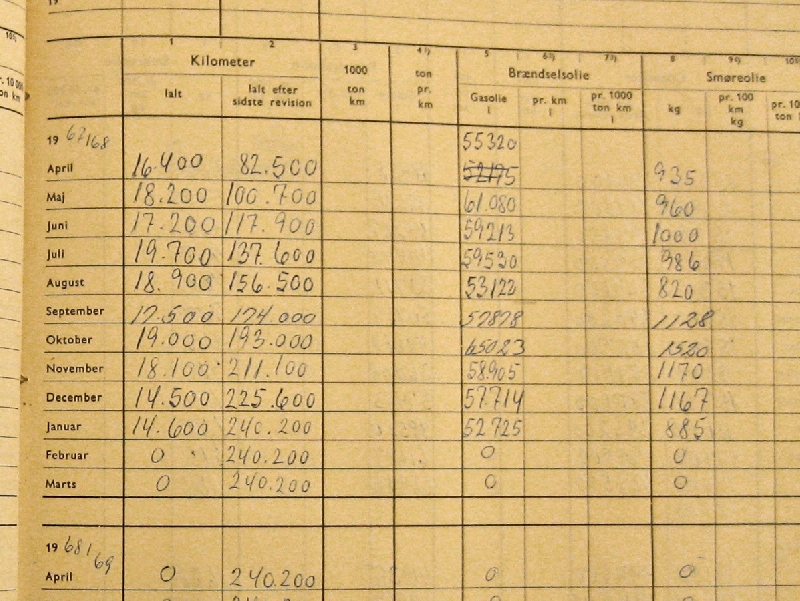 19
1 2 3 4¹⁾ 5 6²⁾ 7²⁾ 8 9⁴⁾
Kilometer 1000 ton km ton pr. km Brændselsolie Smøreolie
Ialt Ialt efter sidste revision Gasolie l pr. km l pr. 1000 ton km l kg pr. 100 km kg pr. 10 ton
pr. 10 ton km
19 67/168 55320
April 16.400 82.500 52175 935
Maj 18.200 100.700 61.080 960
Juni 17.200 117.900 59213 1000
Juli 19.700 137.600 59530 986
August 18.900 156.500 53122 820
September 17.500 174.000 57878 1128
Oktober 19.000 193.000 65023 1520
November 18.100 211.100 58.905 1170
December 14.500 225.600 57.714 1167
Januar 14.600 240.200 52725 885
Februar 0 240.200 0 0
Marts 0 240.200 0 0
19 681/69
April 0 240.200 0 0